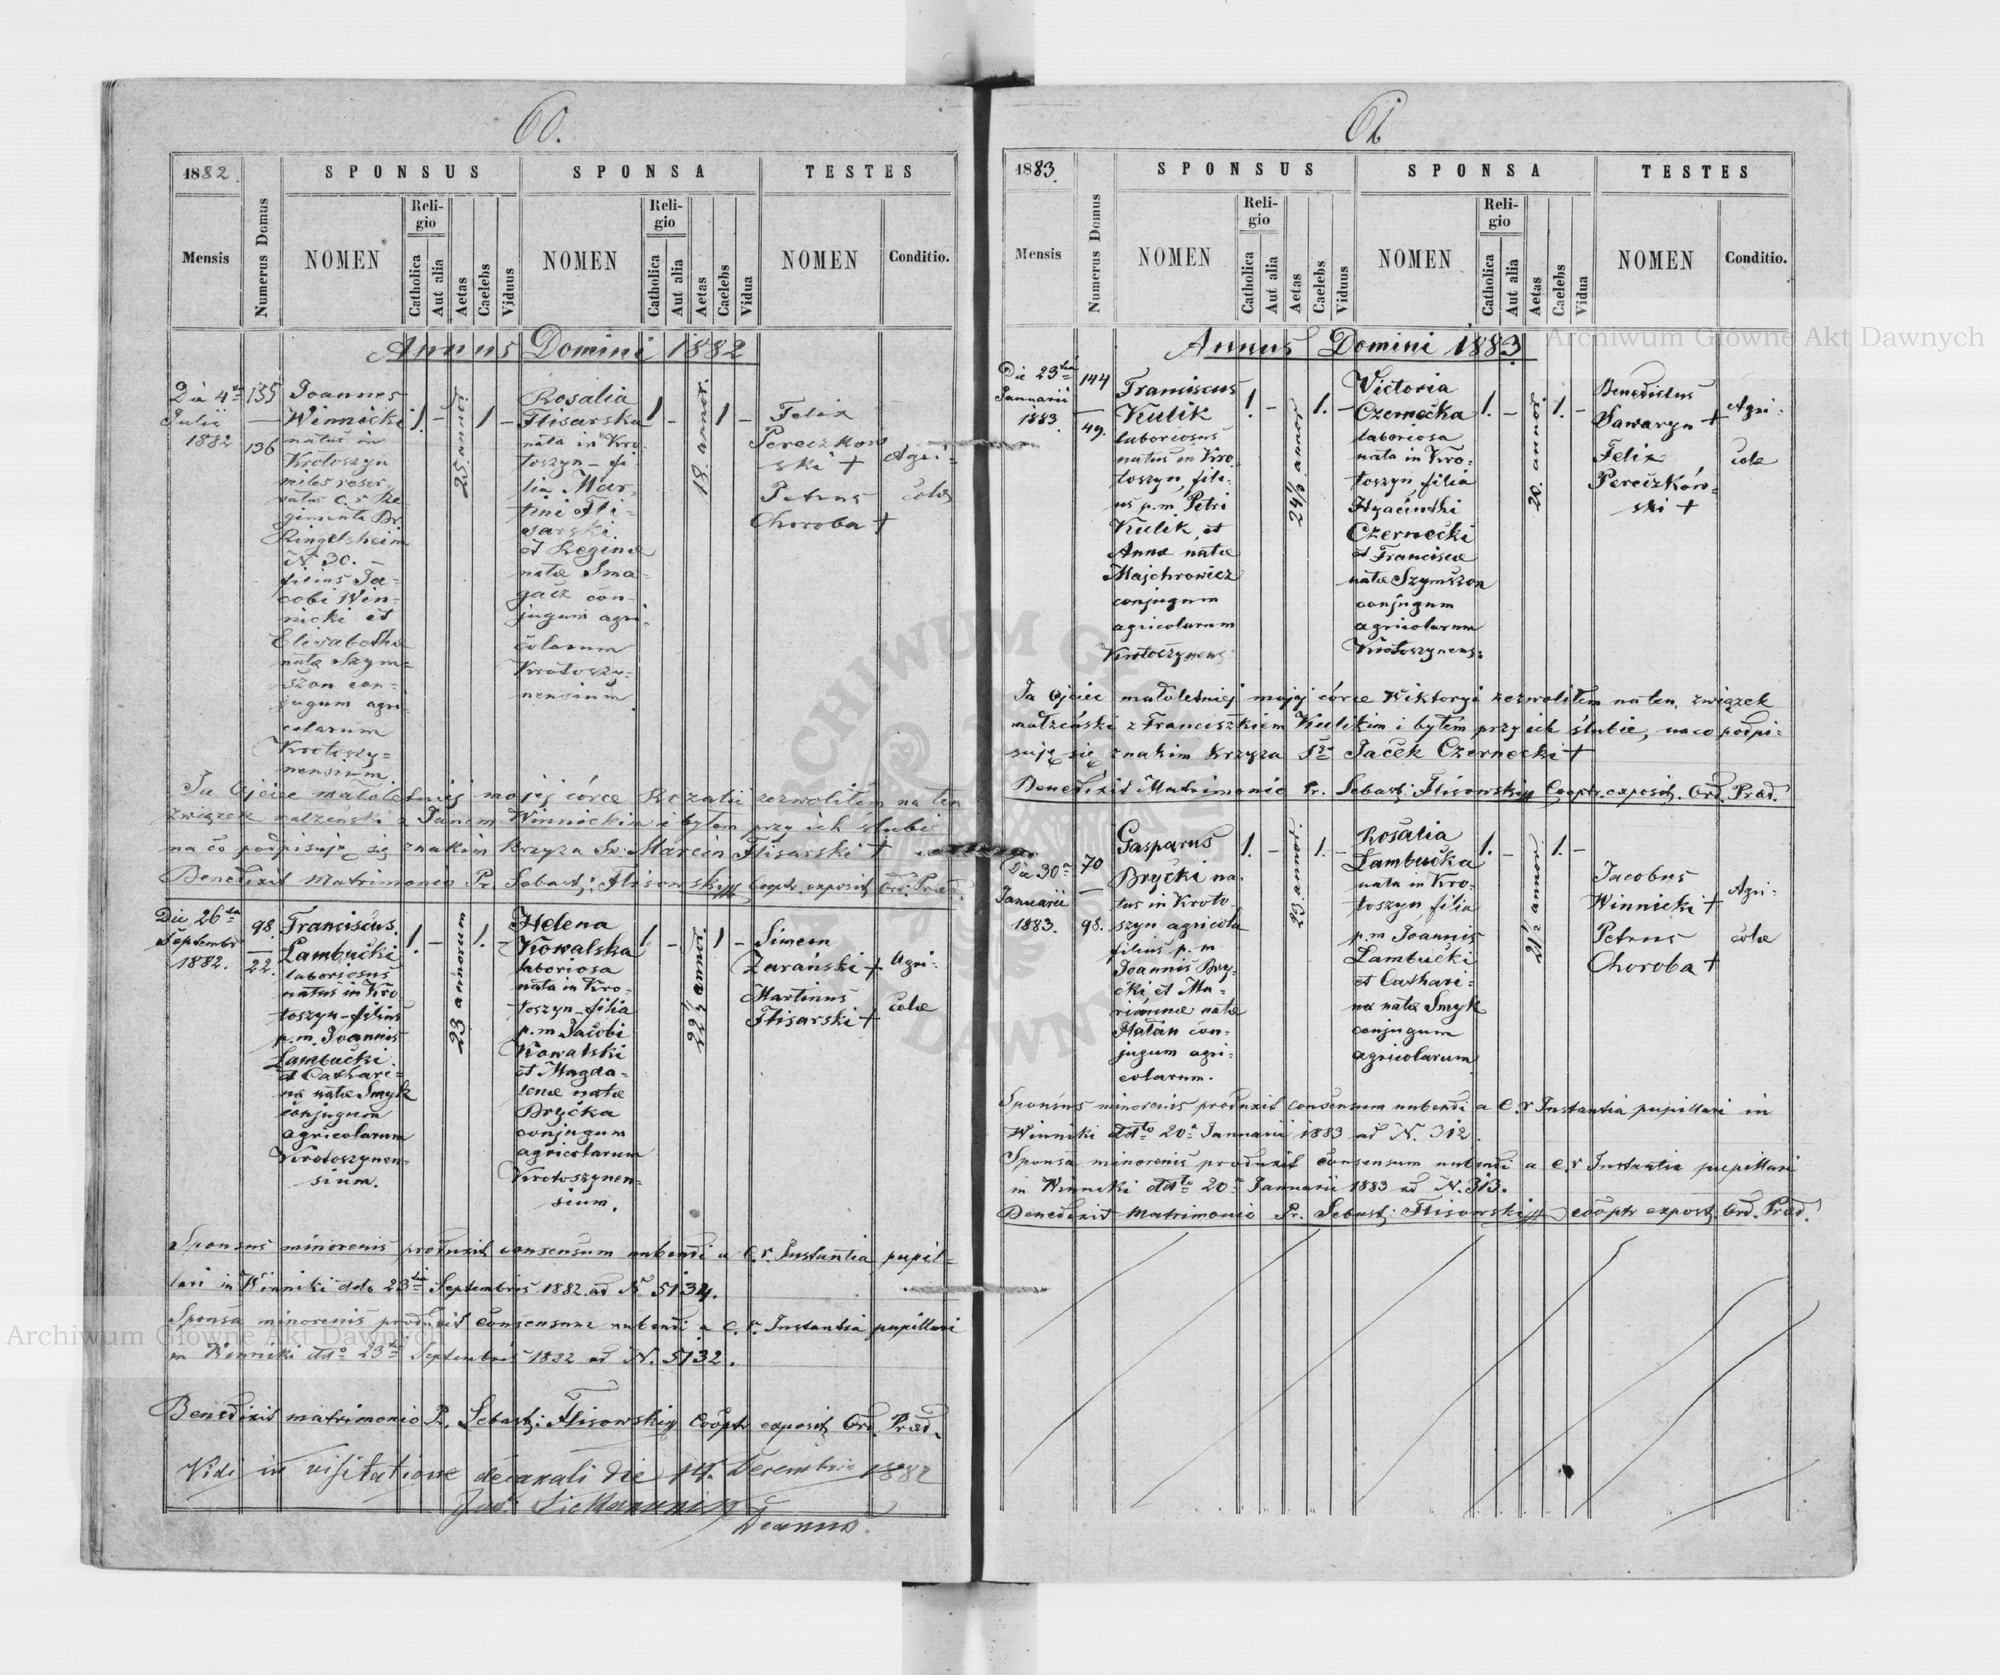 60.
1882.
SPONSUS
SPONSA
TESTES
Mensis
Numerus Domus
NOMEN
Religio
Catholica
Aut alia
Aetas
Caelebs
Viduus
NOMEN
Religio
Catholica
Aut alia
Aetas
Caelebs
Vidua
NOMEN
Conditio.
Annus Domini 1882
Julii
1882
135
136
Joannes
Winnicki
natus in
Krotoszyn
miles reser-
vatus c. r. Re
gimenti Br.
Ringelsheim
N. 30. –
filius Ja-
cobi Win-
nicki et
Elisabethæ
natæ Szym-
szon con-
jugum agri
colarum
Krotoszy-
nensium.
1.
25 annor.
1
–
Rosalia
Flisarska
nata in Kro
toszyn – fi
lia Mar-
tini Fli-
sarski
et Reginæ
natæ Sma-
gacz con-
jugum agri-
colarum
Krotoszy-
nensium
1
–
18. annor.
1
–
Felix
Pereczkow
ski +
Petrus
Choroba +
Agri-
colæ
Ja Ojciec małoletniej mojej córce Rozalii zezwoliłem na ten
związek małżenski z Janem Winnickim i byłem przy ich ślubie
na co podpisuję się znakim krzyża Sw. Marcin Flisarski +
Benedixit Matrimonio Pr. Sebast: Flisowski Cooptr. exposit. Ord. Præd.
Die 26ta
Septembr
1882.
98.
22.
Franciscus
Lambucki
laboriosus
natus in Kro
toszyn – filius
p.m. Joannis
Lambucki
et Cathari-
næ natæ Smyk
conjugum
agricolarum
Krotoszynen-
sium.
1.
–
23 annorum
1.
–
Helena
Kowalska
laboriosa
nata in Kro-
toszyn – filia
p.m. Jacobi
Kowalski
et Magda-
lenæ natæ
Brycka
conjugum
agricolarum
Krotoszynen-
sium.
1
–
22½ annor.
1
–
Simeon
Zarański +
Martinus
Flisarski +
Agri-
colæ
Sponsus minorenis produxit consensum nubendi a C. r. Instantia pupil-
lari in Winniki ddto 23tia Septembris 1882 ad N 5134.
Sponsa minorenis produxit consensum nubendi a C. r. Instantia pupillari
in Winniki ddto 23tia Septembris 1882 ad N. 5132.
Benedixit matrimonio Pr. Sebast: Flisowski Cooptr exposit. Ord. Præd.
Vidi in visitatione decanali die 14. Decembris 1882
Decanus.
61
1883.
SPONSUS
SPONSA
TESTES
Mensis
Numerus Domus
NOMEN
Religio
Catholica
Aut alia
Aetas
Caelebs
Viduus
NOMEN
Religio
Catholica
Aut alia
Aetas
Caelebs
Vidua
NOMEN
Conditio.
Annus Domini 1883
Die 23tia
Januarii
1883.
144
49.
Franciscus
Kulik
laboriosus
natus in Kro
toszyn, fili-
us p.m. Petri
Kulik, et
Annæ natæ
Majchrowicz
conjugum
agricolarum
Krotoszynens
1.
–
24½ annor
1.
–
Victoria
Czernecka
laboriosa
nata in Kro-
toszyn filia
Hyacinthi
Czernecki
et Franciscæ
natæ Szymszon
conjugum
agricolarum
Krotoszynens:
1.
–
20. annor.
1.
–
Benedictus
Sawaryn +
Felix
Pereczków-
ski +
Agri-
colæ
Ja Ojciec małoletniej mojej córce Wiktoryi zezwoliłem na ten związek
małżeński z Franciszkiem Kulikim i byłem przy ich ślubie, na co podpi-
suję się znakim krzyża Sgo Jacek Czernecki +
Benedixit Matrimonio Pr. Sebast: Flisowski Cooptr. exposit. Ord. Præd.
Die 30a
Januarii
1883.
70
98.
Gasparus
Brycki na-
tus in Kroto-
szyn agricola
filius p.m
Joannis Bry-
cki, et Ma-
riannæ natæ
Hałan con-
jugum agri-
colarum.
1.
–
23. annor.
1.
–
Rosalia
Lambucka
nata in Kro-
toszyn, filia
p.m Joannis
Lambucki
et Cathari-
næ natæ Smyk
conjugum
agricolarum
1.
–
21½ annor
1.
–
Jacobus
Winnicki +
Petrus
Choroba +
Agri-
colæ
Sponsus minorenis produxit consensum nubendi a C. r Instantia pupillari in
Winniki ddto 20a Januarii 1883 ad N. 312.
Sponsa minorenis produxit consensum nubendi a C. r Instantia pupillari
in Winniki ddto 20a Januarii 1883 ad N. 313.
Benedixit Matrimonio Pr. Sebast: Flisowski cooptr exposit. Ord. Præd.
Archiwum Główne Akt Dawnych
Archiwum Główne Akt Dawnych